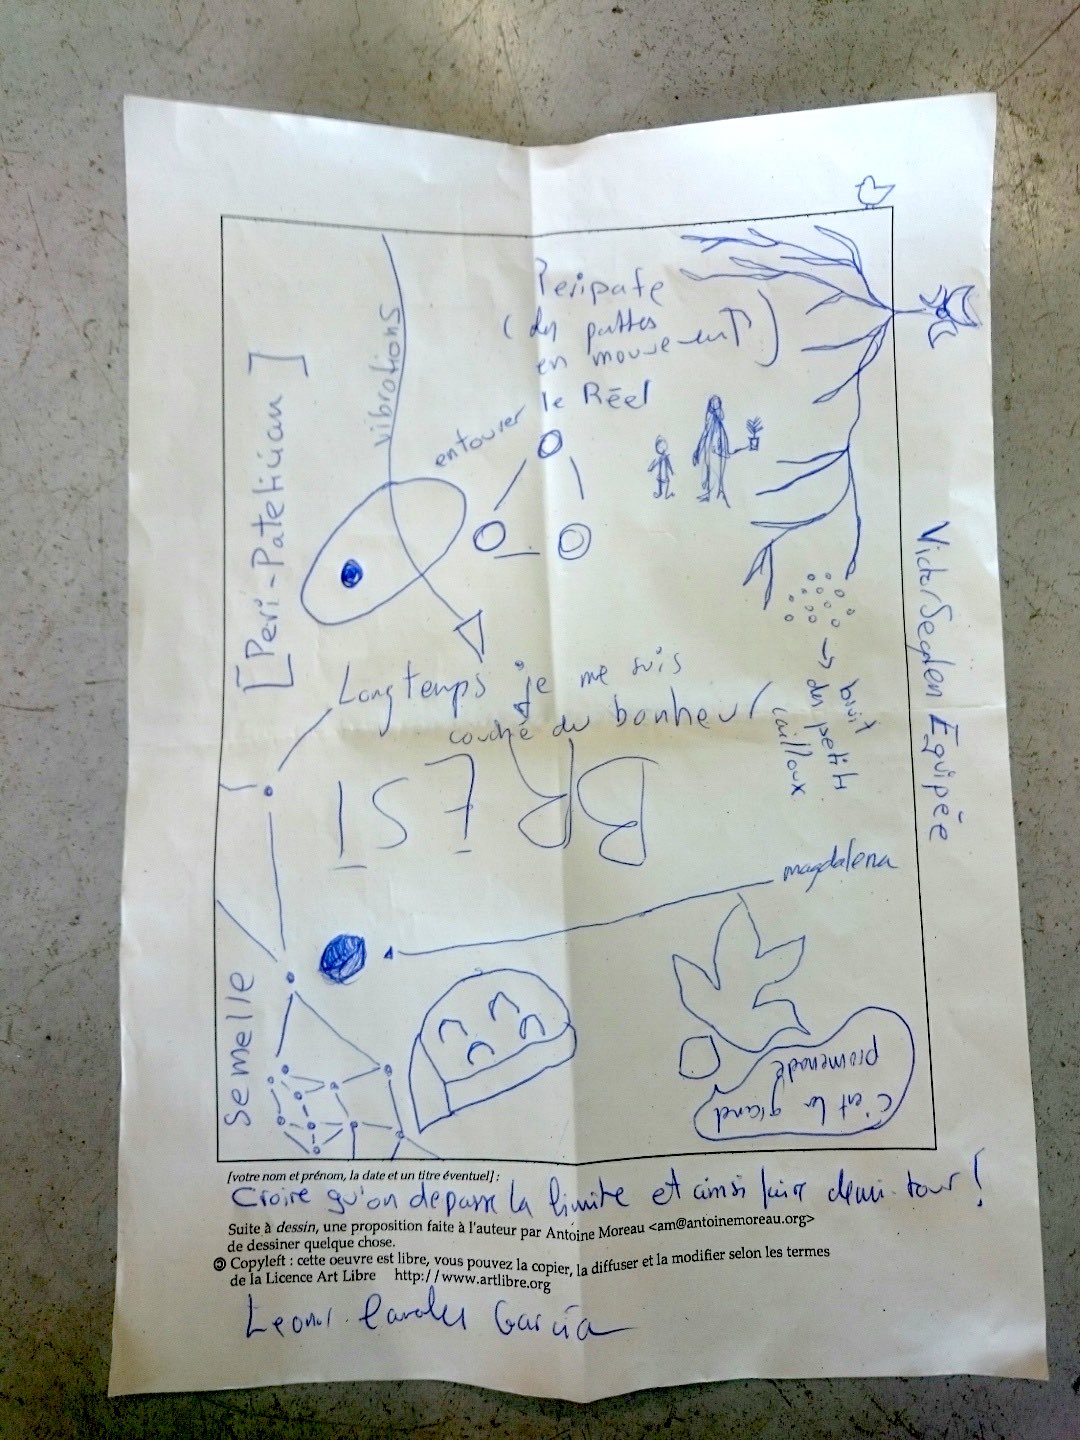 Peripate
(des pattes
en mouvement)
le Réel
entourer
vibrations
[Peri-Pateticiàn]
Longtemps je me suis
couché du bonheur
→ bruit
des petits
cailloux
Victor Segalen Equipée
BREST
magdalena
semelle
c'est la grand
promenade
[votre nom et prénom, la date et un titre éventuel] :
Croire qu'on depasse la limite et ainsi faire demi-tour !
Suite à dessin, une proposition faite à l'auteur par Antoine Moreau <am@antoinemoreau.org>
de dessiner quelque chose.
Copyleft : cette oeuvre est libre, vous pouvez la copier, la diffuser et la modifier selon les termes
de la Licence Art Libre http://www.artlibre.org
Garcia